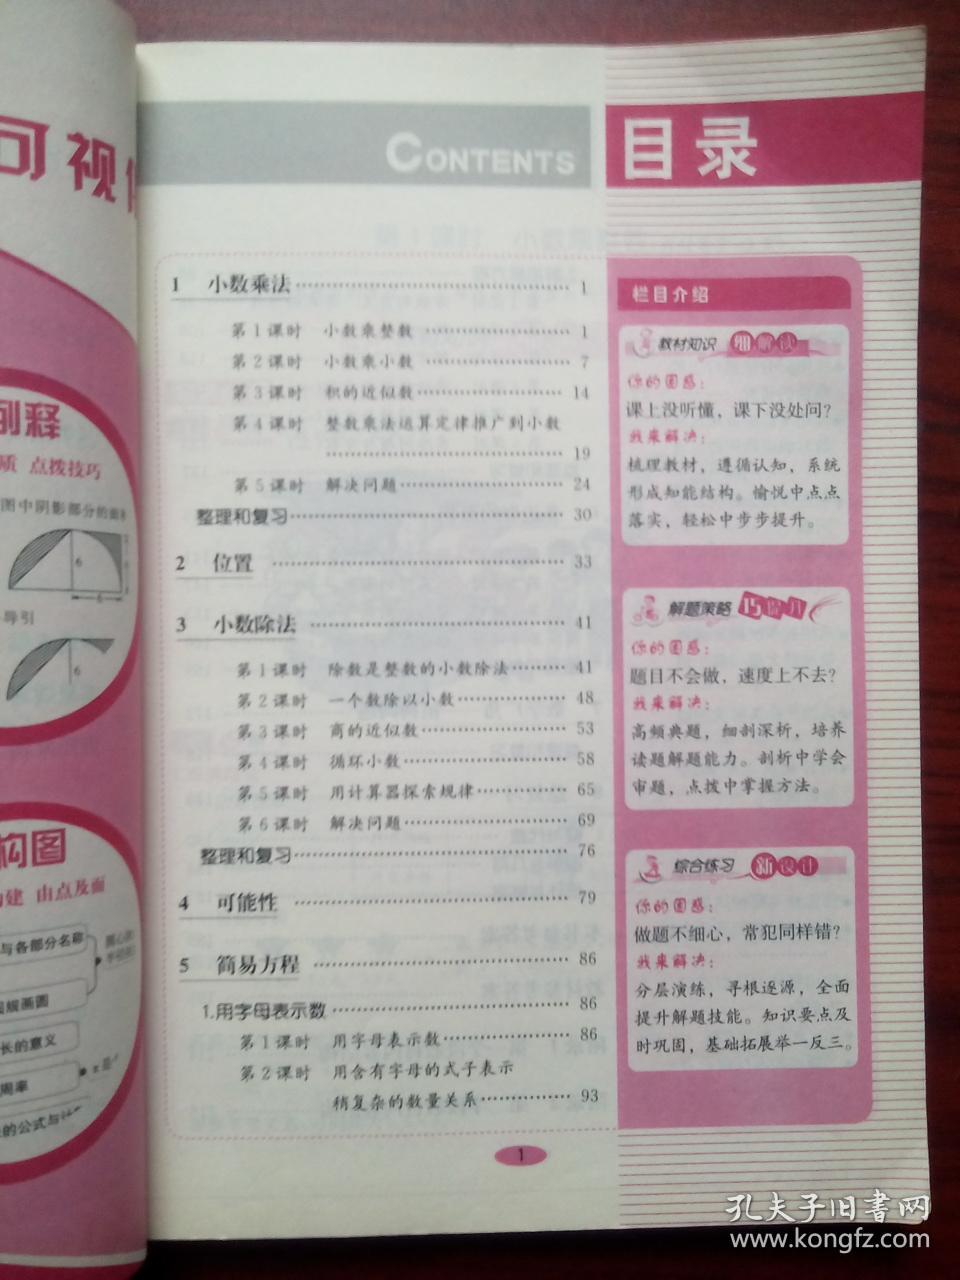 可视
例释
质 点拨技巧
图中阴影部分的面
6
6
导引
6
构图
构建 由点及面
与各部分名称
规画圆
长的意义
周率
的公式与
CONTENTS
目录
1 小数乘法 1
第1课时 小数乘整数 1
第2课时 小数乘小数 7
第3课时 积的近似数 14
第4课时 整数乘法运算定律推广到小数
19
第5课时 解决问题 24
整理和复习 30
2 位置 33
3 小数除法 41
第1课时 除数是整数的小数除法 41
第2课时 一个数除以小数 48
第3课时 商的近似数 53
第4课时 循环小数 58
第5课时 用计算器探索规律 65
第6课时 解决问题 69
整理和复习 76
4 可能性 79
5 简易方程 86
1.用字母表示数 86
第1课时 用字母表示数 86
第2课时 用含有字母的式子表示
稍复杂的数量关系 93
1
栏目介绍
教材知识 细解读
你的困惑：
课上没听懂，课下没处问？
我来解决：
梳理教材，遵循认知，系统
形成知能结构。愉悦中点点
落实，轻松中步步提升。
解题策略 巧提升
你的困惑：
题目不会做，速度上不去？
我来解决：
高频典题，细剖深析，培养
读题解题能力。剖析中学会
审题，点拨中掌握方法。
综合练习 新设计
你的困惑：
做题不细心，常犯同样错？
我来解决：
分层演练，寻根逐源，全面
提升解题技能。知识要点及
时巩固，基础拓展举一反三。
孔夫子旧书网
www.kongfz.com